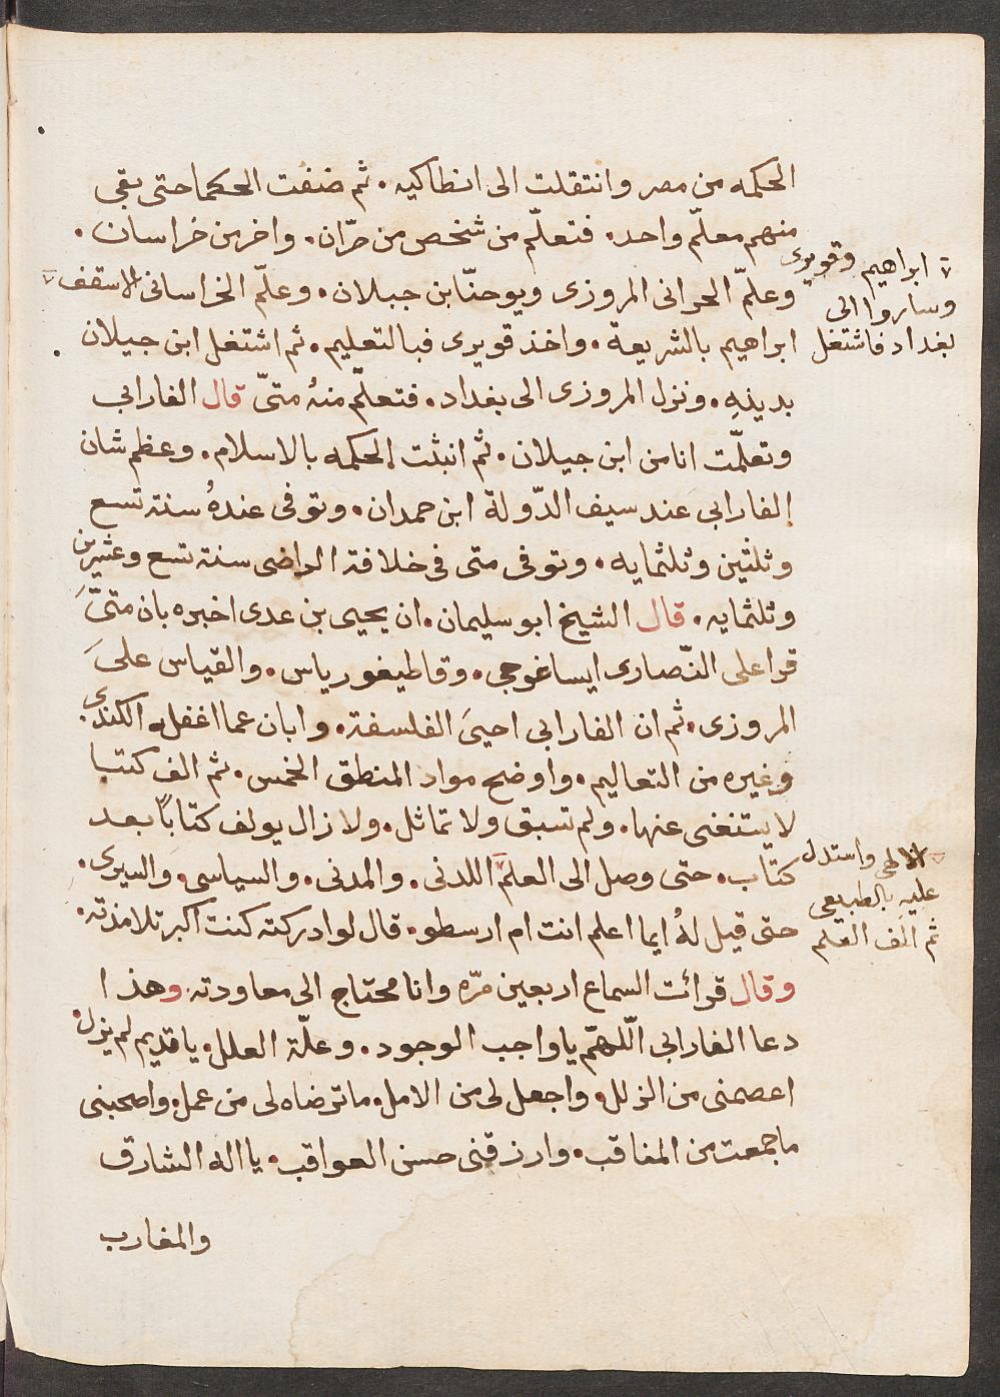 الحكمه من مصر وانتقلت الى انطاكيه . ثم ضنفت الحكما حتى بقى
منهم معلّم واحد . فتعلّم من شخص من حرّان . واخر من خراسان .
وعلّم الحرانى المروزى ويوحنّا بن جبلان . وعلّم الخراسانى الاسقف
ابراهيم وقويرى
وساروا الى
بغداد فاشتغل
ابراهيم بالشريعة . واخذ قويرى فى التعليم . ثم اشتغل ابن جيلان
بدينهِ . ونزل المروزى الى بغداد . فتعلّم منهُ متىّ قال الفارابي
وتعلّمت انا من ابن جيلان . ثم انبثت الحكمه بالاسلام . وعظم شان
الفارابي عند سيف الدّولة ابن حمدان . وتوفى عندهُ سنة تسع
وثلثين وثلثمايه . وتوفى متى فى خلافة الراضى سنة تسع وعشرين
وثلثمايه . قال الشيخ ابو سليمان . ان يحيى بن عدى اخبره بان متىّ
قرا على النّصارى ايساغوجى . وقاطيغورياس . والقياس على
المروزى . ثم ان الفارابي احيىَ الفلسفة . وابان عما اغفله الكندى .
وغيره من التعاليم . واوضح مواد المنطق الخمس . ثم الف كتبا
لا يستغنى عنها . ولم تسبق ولا تماثل . ولا زال يولف كتاباً بعد
كتاب . حتى وصل الى العلم اللدنى . والمدنى . والسياسى . والسيرى .
الالهى واستدل
عليهِ بالطبيعى
ثم الّف العلم
حتى قيل لهُ ايما اعلم انت ام ارسطو . قال لو ادركته كنت اكبر تلامذته .
وقال قرائت السماع اربعين مرّه وانا محتاج الى معاودته . وهذا
دعا الفارابى الّلهمّ يا واجب الوجود . وعلّة العلل . يا قديم لم يزل .
اعصمنى من الزلل . واجعل لى من الامل . ما ترضاه لى من عمل . واصحبنى
ما جمعت من المناقب . وارزقنى حسن العواقب . يا اله الشارق
والمغارب